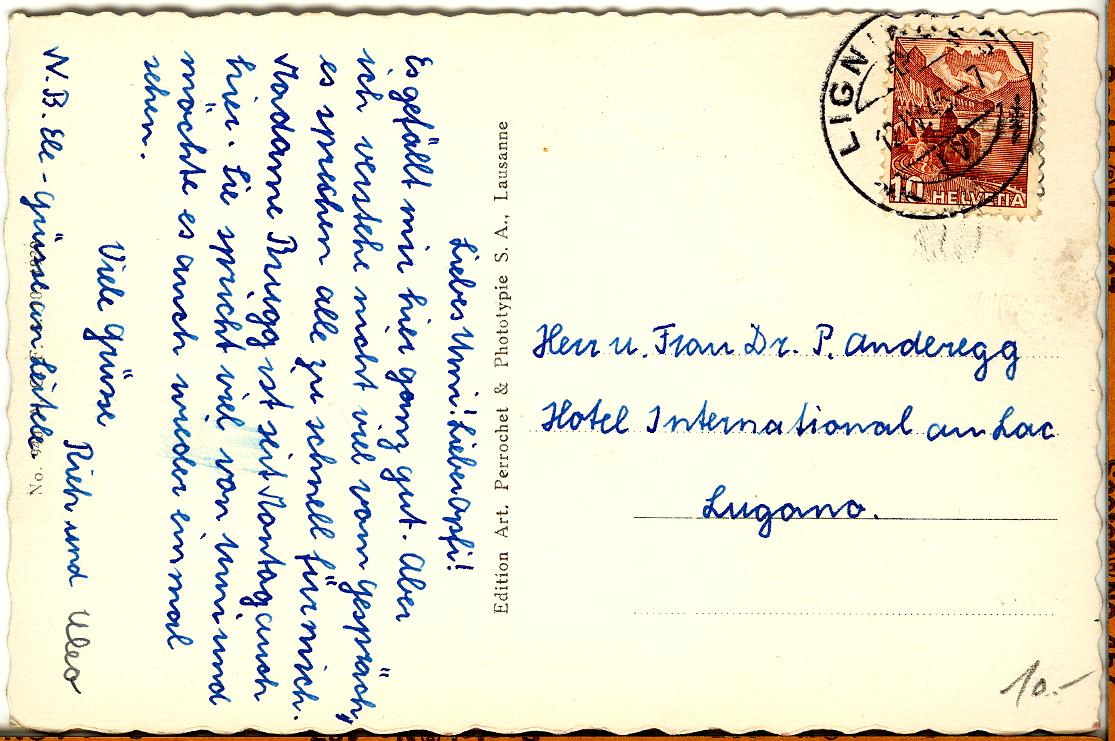 Liebes Ummi! Lieber Apfi!
Es gefällt mir hier ganz gut. Aber
ich verstehe nicht viel vom Gespräch,
es sprechen alle zu schnell für mich.
Madame Brügg ist seit Montag auch
hier. Sie spricht viel von Ummi und
möchte es auch wieder einmal
sehen.
Viele Grüsse
Rich und Uleo
N.B. Ele-Grüsse an
No.
Edition Art. Perrochet & Phototypie S. A., Lausanne
LIGN
-7
10 HELVETIA
Herr u. Frau Dr. P. Anderegg
Hotel International au Lac
Lugano.
10.-